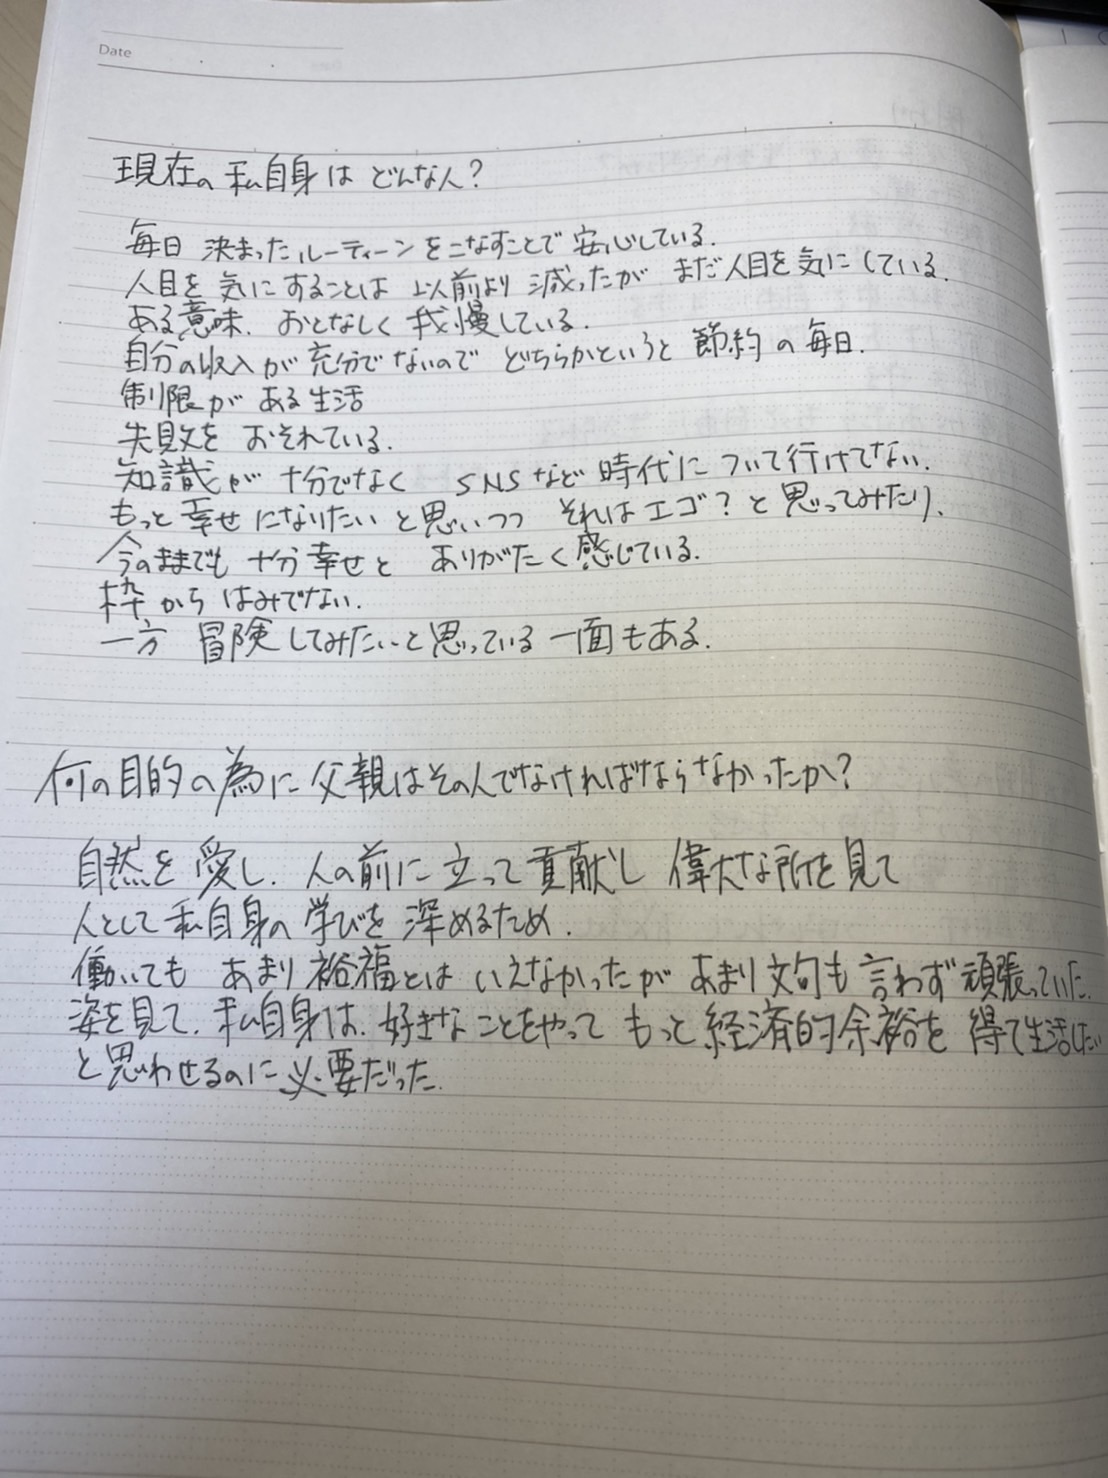 Date
現在の私自身はどんな人?
毎日 決まったルーティーンをこなすことで安心している.
人目を気にすることは以前より減ったが まだ人目を気にしている.
ある意味、おとなしく我慢している.
自分の収入が充分でないので どちらかというと節約の毎日.
制限がある生活
失敗をおそれている.
知識が十分でなく SNSなど時代について行けてない.
もっと幸せになりたいと思いつつ それはエゴ?と思ってみたり、
今のままでも十分幸せと ありがたく感じている.
枠からはみでない.
一方 冒険してみたいと思っている一面もある.
何の目的の為に父親はその人でなければならなかったか?
自然を愛し、人の前に立って貢献し 偉大な所を見て
人として私自身の学びを深めるため.
働いても あまり裕福とはいえなかったが あまり文句も言わず頑張っていた
姿を見て、私自身は、好きなことをやって もっと経済的余裕を得て生活したい
と思わせるのに必要だった.